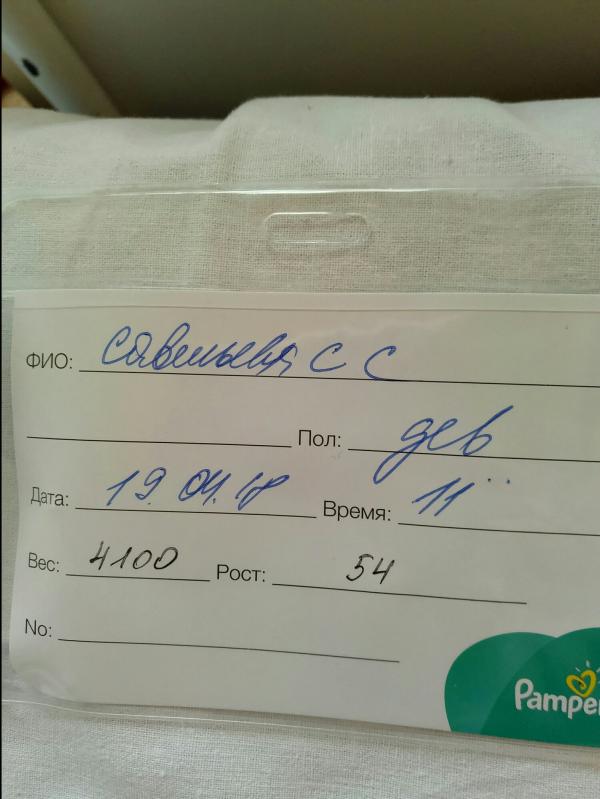 ФИО: Савельева С С
Пол: дев
Дата: 19.04.18 Время: 11
Вес: 4100 Рост: 54
No: